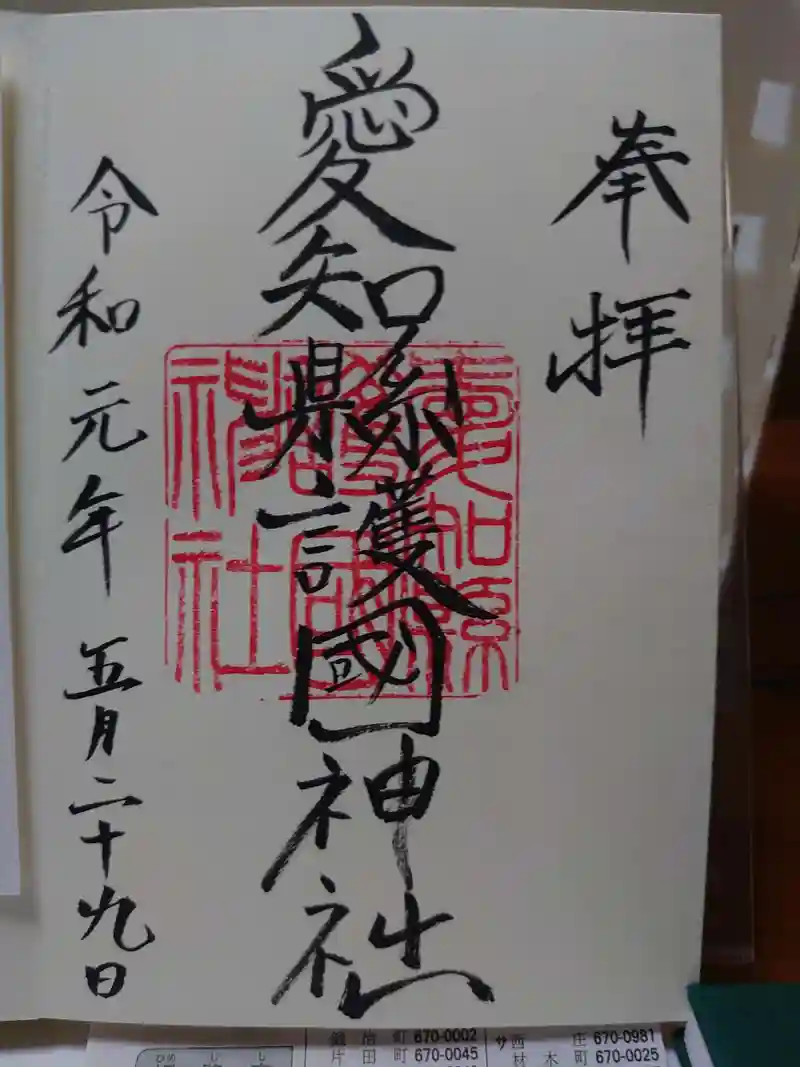 奉拝
愛知縣護國神社
愛知縣護國神社
令和元年五月二十九日
町 670-0002
片田町 670-0045
サ 西 庄 670-0981
材木町 670-0025
ひめ じ し